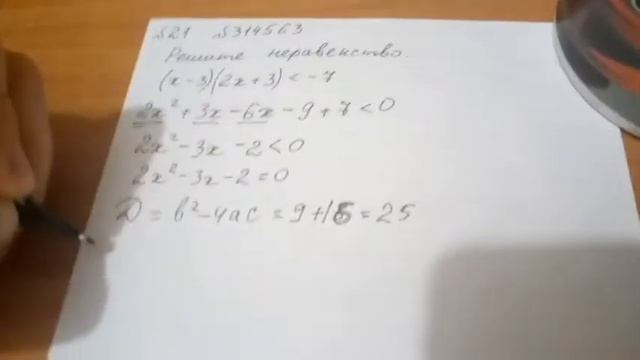 №21 №314563
Решите неравенство.
(x-3)(2x+3)<-7
2x²+3x-6x-9+7<0
2x²-3x-2<0
2x²-3x-2=0
D=b²-4ac=9+16=25